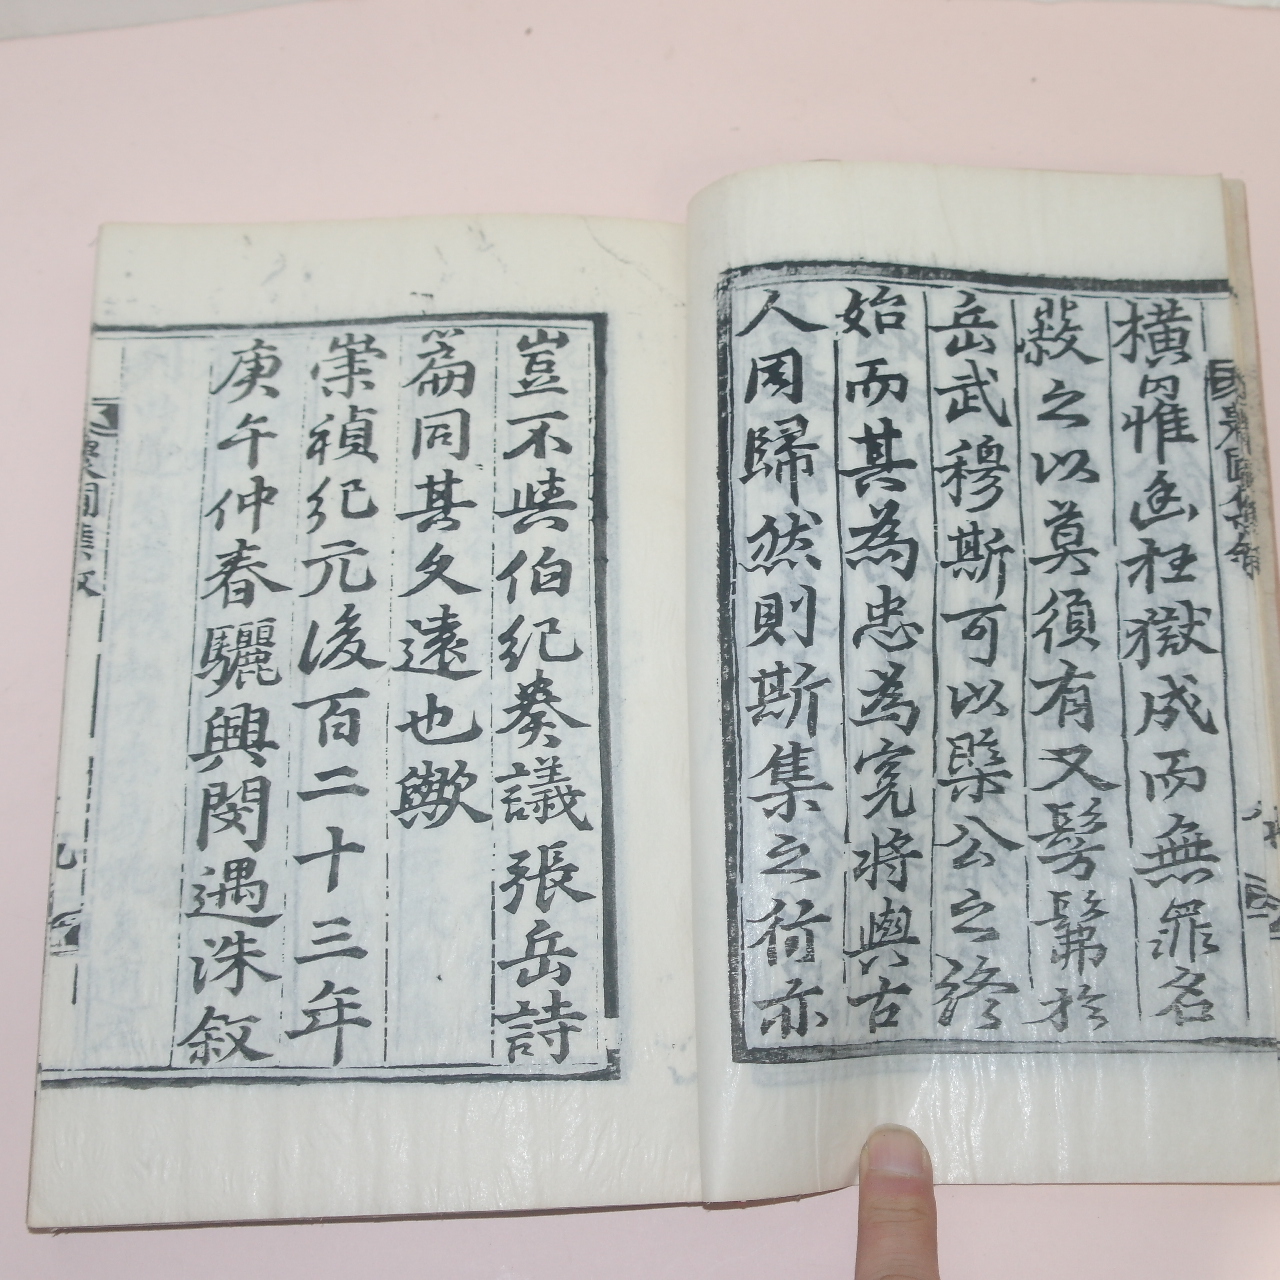 橫罹惟幽枉獄成而無罪名
殺之以莫須有又髣髴於
岳武穆斯可以槩公之終
始而其為忠為寃將與古
人同歸然則斯集之行亦
豈不與伯紀奏議張岳詩
篇同其久遠也歟
崇禎紀元後百二十三年
庚午仲春驪興閔遇洙敘